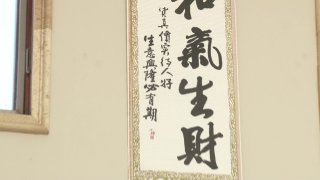 和氣生財
貨真價實待人好
生意興隆必有期